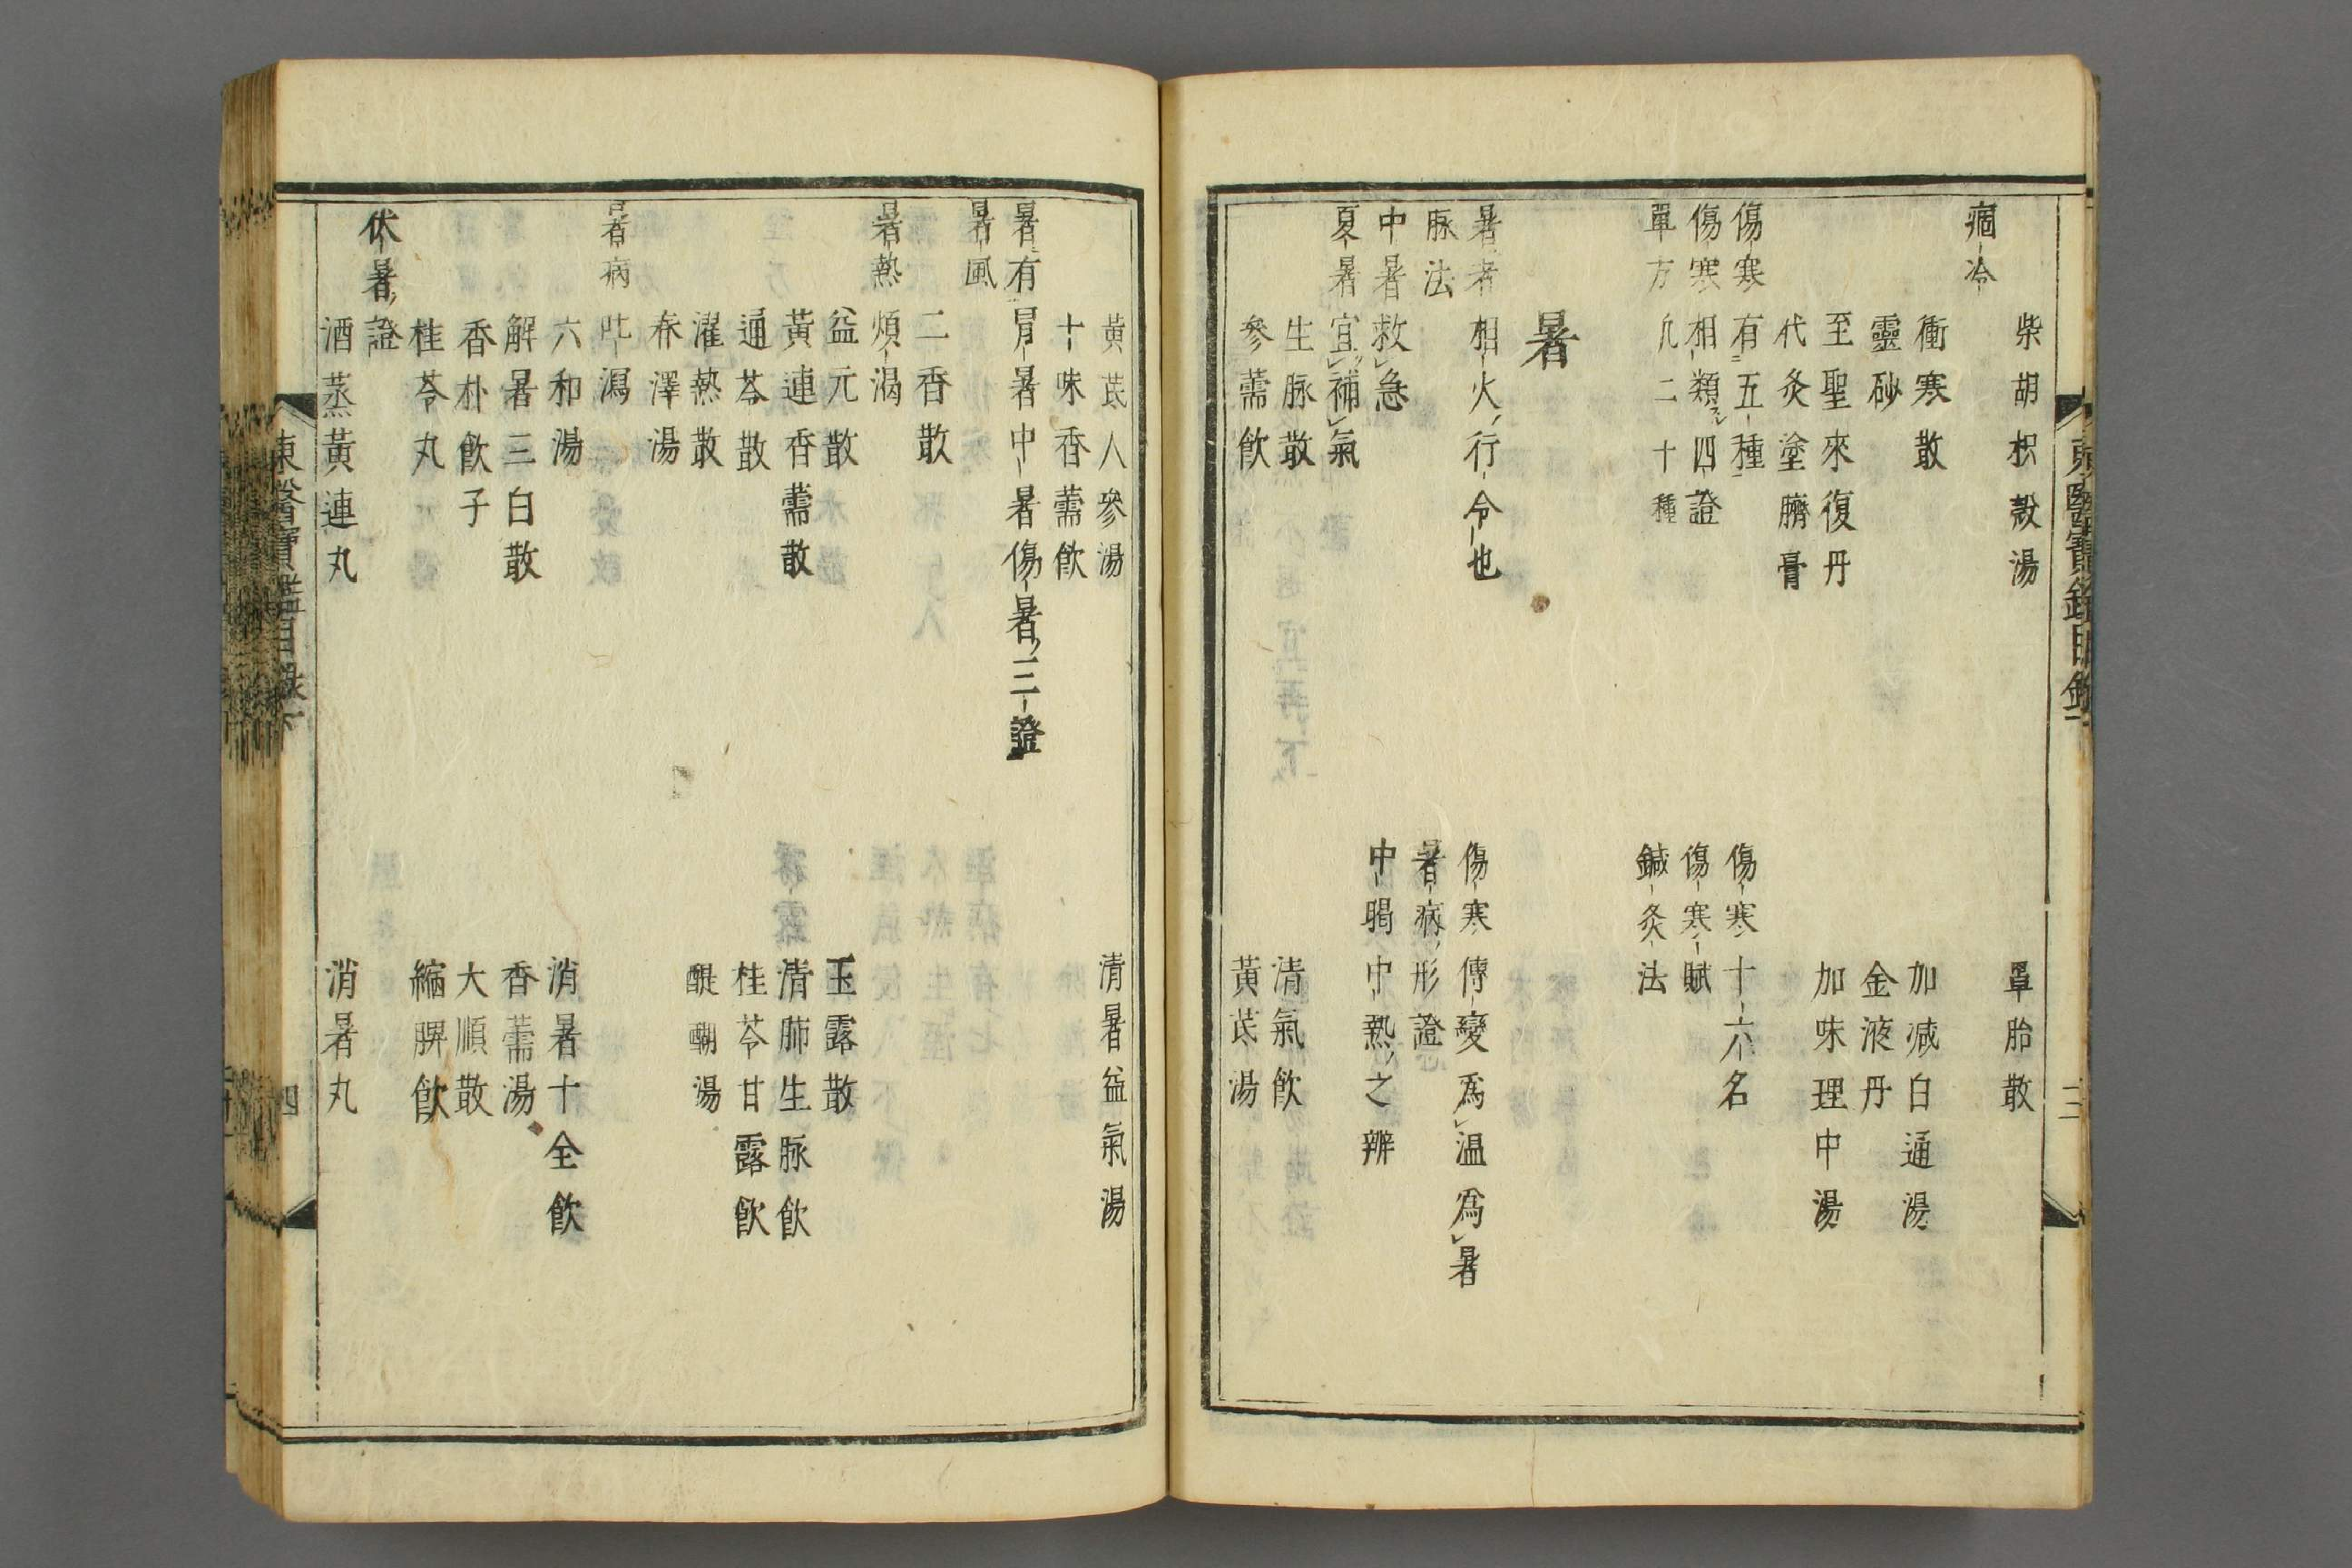 柴胡枳殼湯
罩胎散
痼冷
衝寒散
加減白通湯
靈砂
金液丹
至聖來復丹
加味理中湯
代灸塗臍膏
傷寒有五種
傷寒十六名
傷寒相類四證
傷寒賦
單方凢二十種
鍼灸法
暑
暑者相火行令也
傷寒傳變爲温爲暑
脉法
暑病形證
中暑救急
中暍中熱之辨
夏暑宜補氣
生脉散
清氣飮
參薷飮
黃芪湯
東醫寶鑑目錄下
三
黃芪人參湯
清暑益氣湯
十味香薷飮
暑有冒暑中暑傷暑三證
暑風
二香散
暑熱煩渴
益元散
玉露散
黃連香薷散
清肺生脉飮
通苓散
桂苓甘露飮
濯熱散
醍醐湯
春澤湯
暑病吐瀉
六和湯
消暑十全飮
解暑三白散
香薷湯
香朴飮子
大順散
桂苓丸
縮脾飮
伏暑證
酒蒸黃連丸
消暑丸
東醫寶鑑目錄下
四